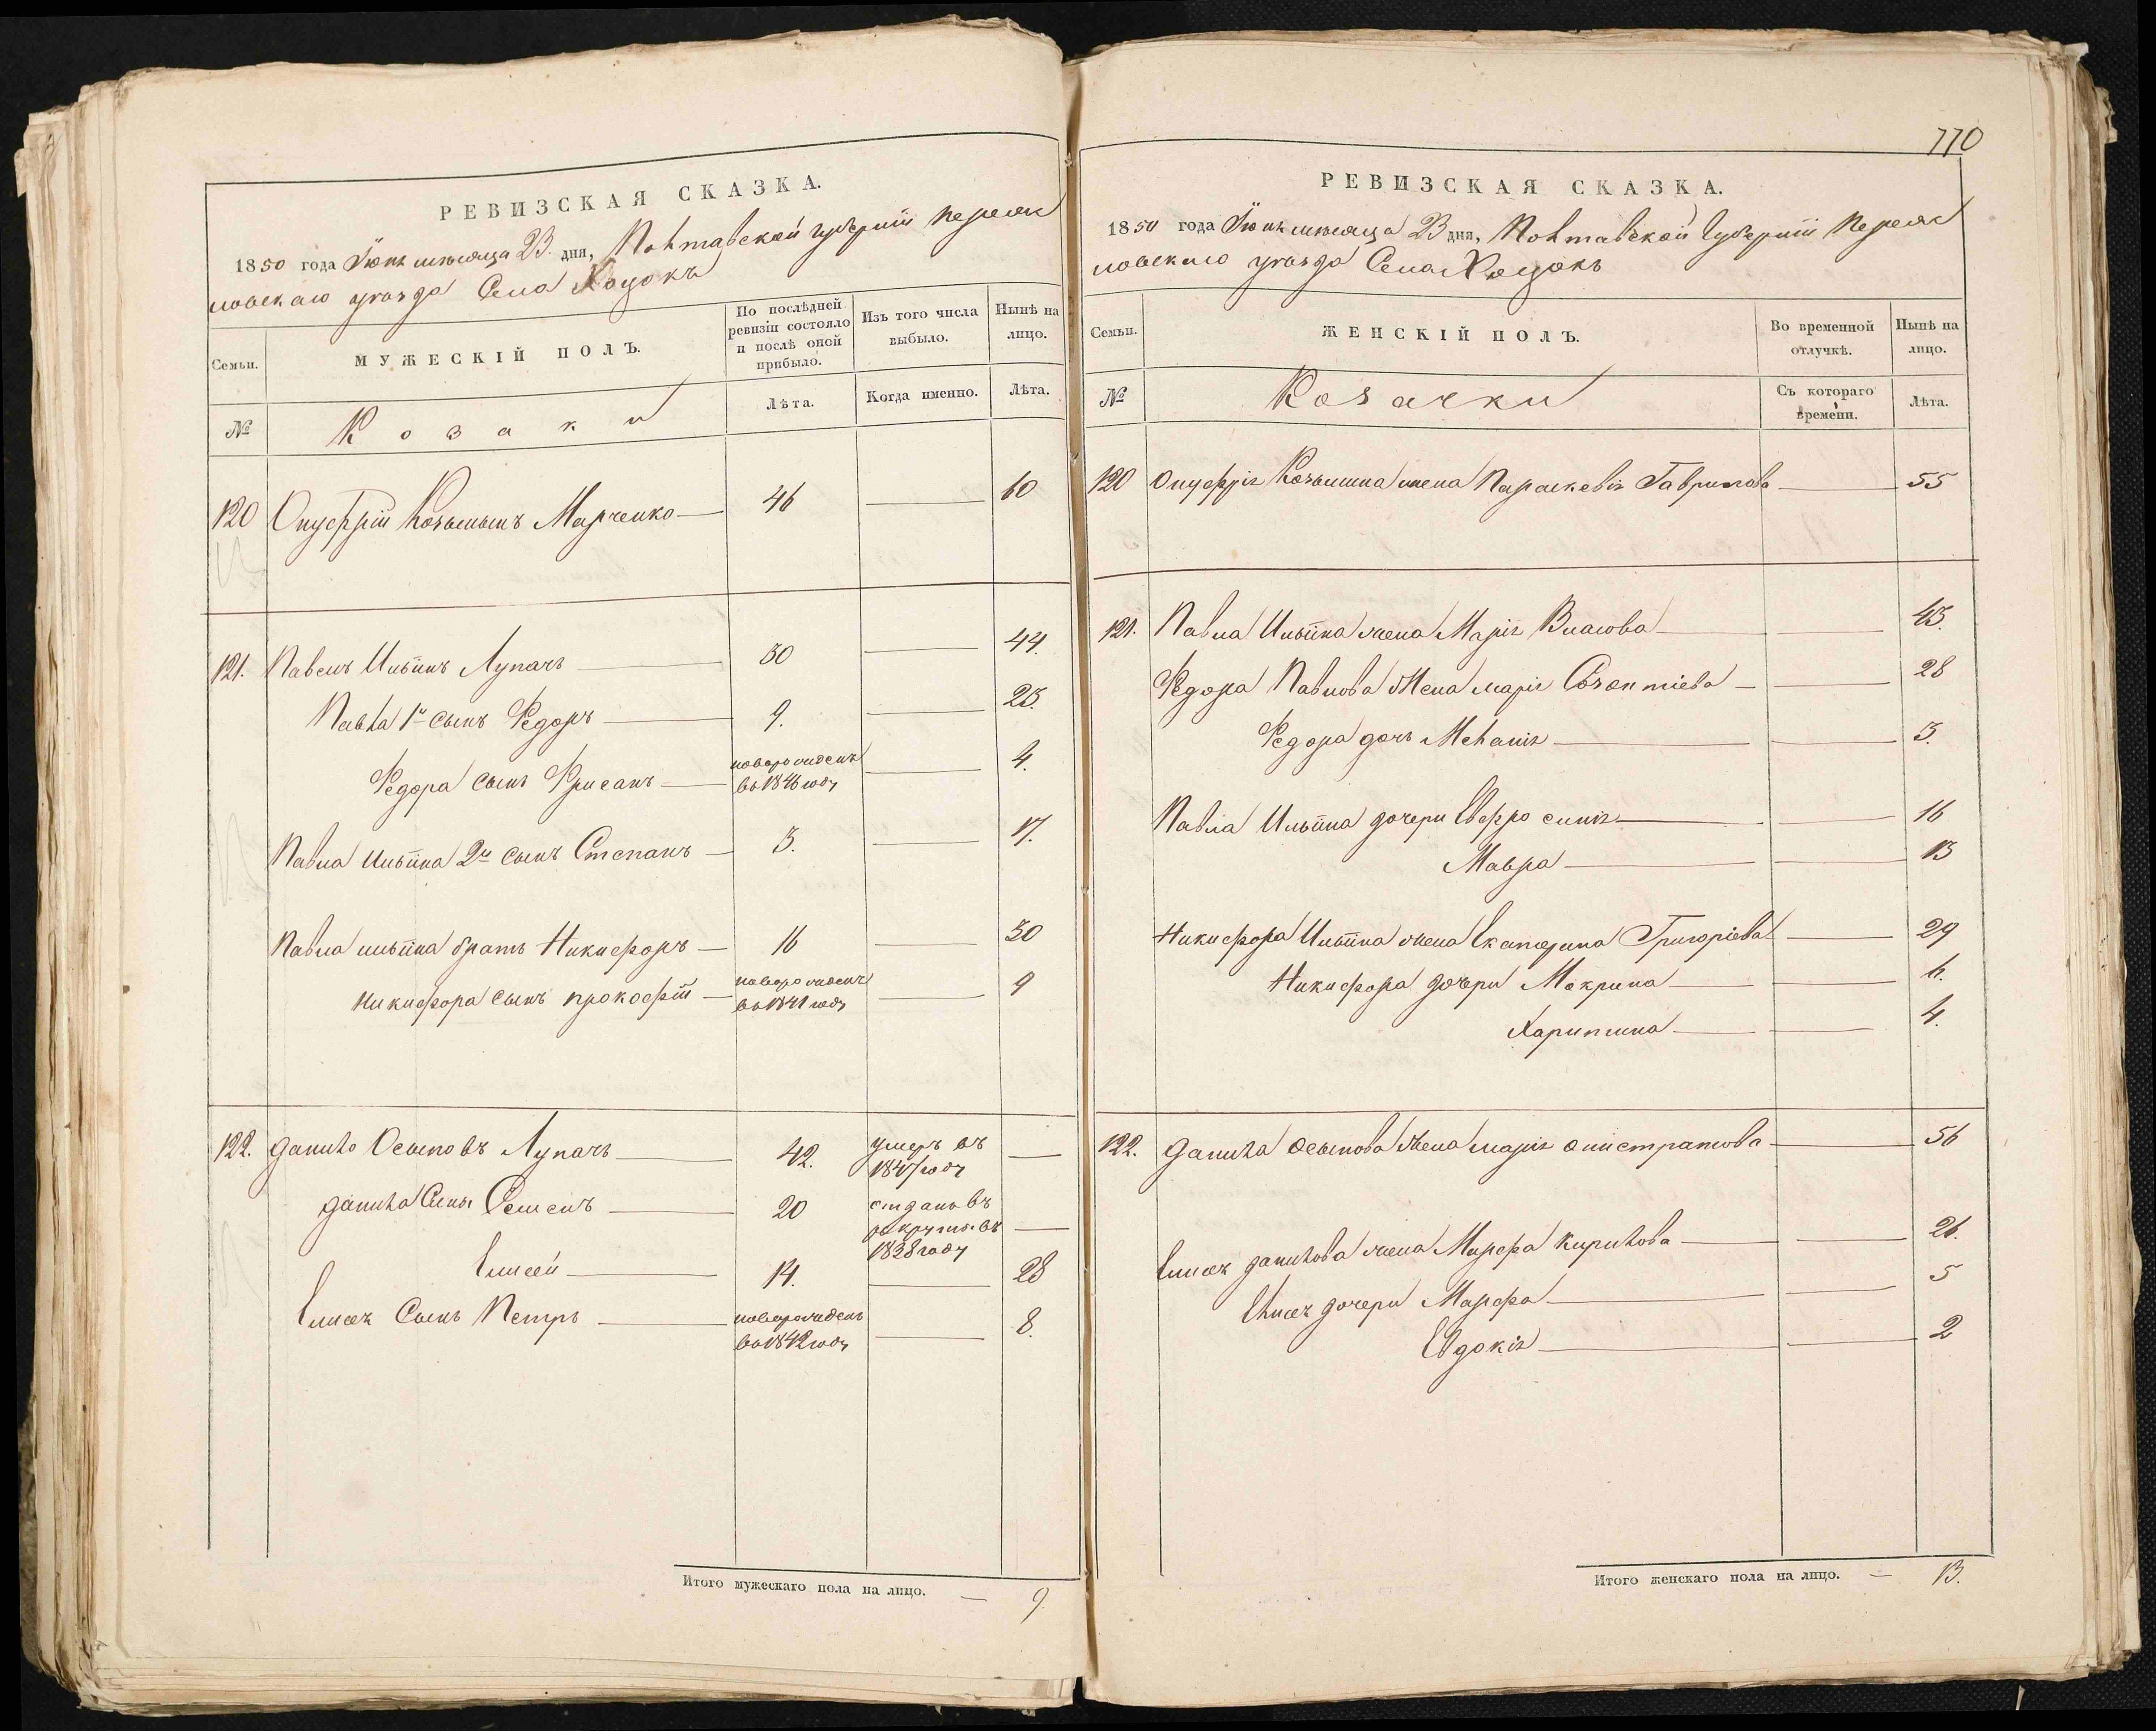 РЕВИЗСКАЯ СКАЗКА.
1850 года Іюнь мѣсяца 23 дня, Полтавской губерніи Переяс
ловскаго уѣзда Села Хоцокъ
Семьи.
МУЖЕСКІЙ ПОЛЪ.
По послѣдней ревизіи состояло и послѣ оной прибыло.
Изъ того числа выбыло.
Нынѣ на лицо.
№
Козаки
Лѣта.
Когда именно.
Лѣта.
120 Онуфрій Козьминъ Марченко 46 60
121. Павелъ Ильинъ Лупачъ 30 44.
Павла 1й сынъ Федоръ 9. 23.
Федора сынъ Фрисанъ новорожденъ во 1846 году 4.
Павла Ильина 2й сынъ Степанъ 3. 17.
Павла ильина братъ Никифоръ 16 30
Никифора сынъ прокофій новорожденъ во 1841 году 9
122. данило Осиповъ Лупачъ 42. умеръ въ 1847 году
данила Сынъ Семенъ 20 отданъ въ рекруты въ 1838 году
Елисей 14. 28
Елисея Сынъ Петръ новорожденъ во 1842 году 8.
Итого мужескаго пола на лицо. — 9
770
РЕВИЗСКАЯ СКАЗКА.
1850 года Іюнь мѣсяца 23 дня, Полтавской Губерніи Переяс
ловскаго уѣзда Села Хоцокъ
Семьи.
ЖЕНСКІЙ ПОЛЪ.
Во временной отлучкѣ.
Нынѣ на лицо.
№
Козачки
Съ котораго времени.
Лѣта.
120 Онуфрія Козьмина жена Параскевія Гаврилова 55
121. Павла Ильина жена Марія Власова 43.
Федора Павлова Жена марія 28
Федора дочь Меланія 3.
Павла Ильина дочери Евфросинія 16
Мавра 13
Никифора Ильина жена Екатерина Григоріева 29
Никифора дочери Макрина 6.
Харитина 4.
122. Данила Осипова Жена марія онистратова 56
Елисея данилова жена Марфа Кирилова 26.
Елисея дочери Марфа 5
Евдокія 2
Итого женскаго пола на лицо. — 13.